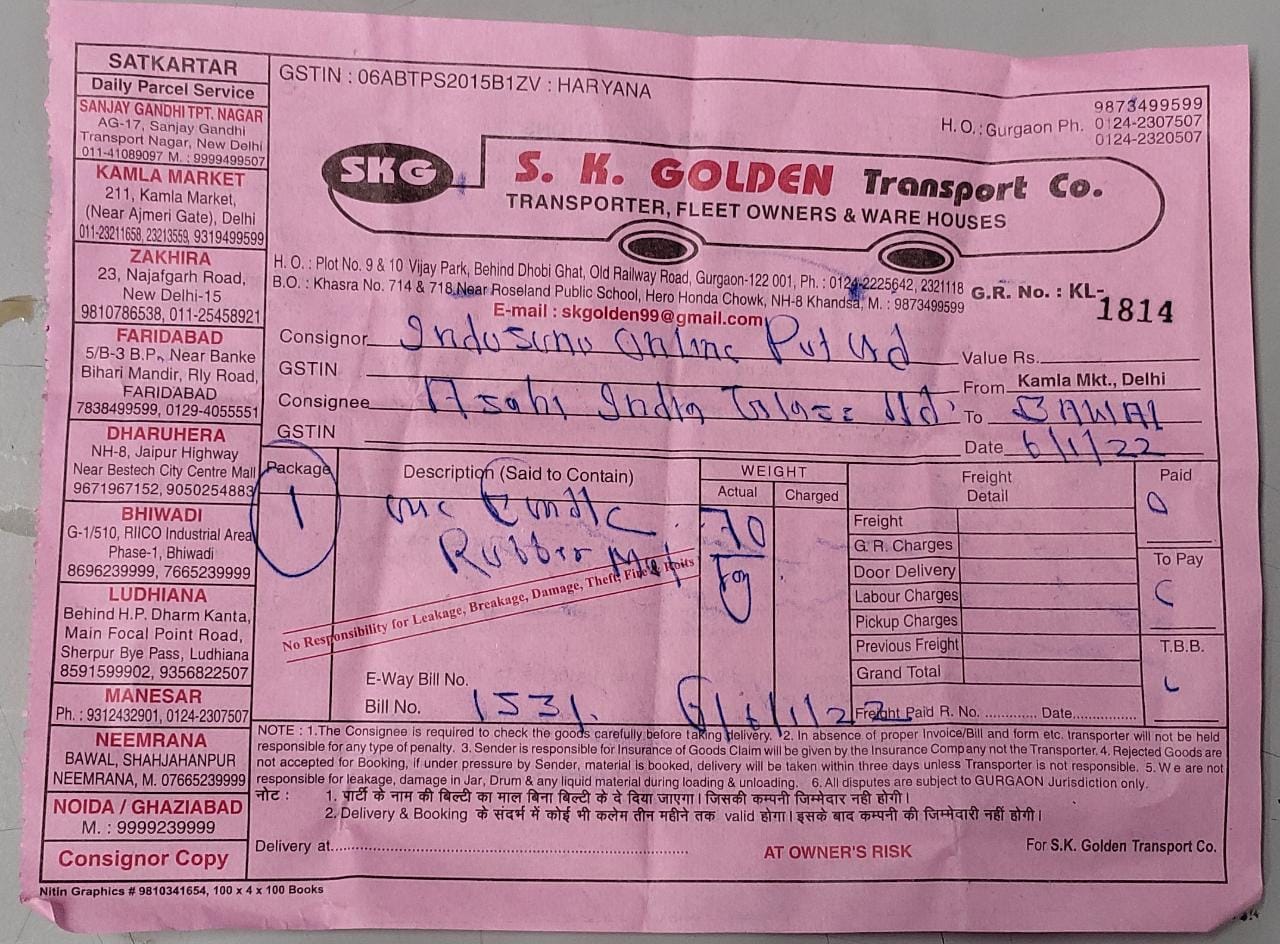 SATKARTAR
Daily Parcel Service
SANJAY GANDHI TPT. NAGAR
AG-17, Sanjay Gandhi
Transport Nagar, New Delhi
011-41089097 M. : 9999499507
KAMLA MARKET
211, Kamla Market,
(Near Ajmeri Gate), Delhi
011-23211658, 23213559, 9319499599
ZAKHIRA
23, Najafgarh Road,
New Delhi-15
9810786538, 011-25458921
FARIDABAD
5/B-3 B.P., Near Banke
Bihari Mandir, Rly Road,
FARIDABAD
7838499599, 0129-4055551
DHARUHERA
NH-8, Jaipur Highway
Near Bestech City Centre Mall
9671967152, 9050254883
BHIWADI
G-1/510, RIICO Industrial Area
Phase-1, Bhiwadi
8696239999, 7665239999
LUDHIANA
Behind H.P. Dharm Kanta,
Main Focal Point Road,
Sherpur Bye Pass, Ludhiana
8591599902, 9356822507
MANESAR
Ph. : 9312432901, 0124-2307507
NEEMRANA
BAWAL, SHAHJAHANPUR
NEEMRANA, M. 07665239999
NOIDA / GHAZIABAD
M. : 9999239999
Consignor Copy
GSTIN : 06ABTPS2015B1ZV : HARYANA
9873499599
H. O. : Gurgaon Ph. 0124-2307507
0124-2320507
SKG S. K. GOLDEN Transport Co.
TRANSPORTER, FLEET OWNERS & WARE HOUSES
H. O. : Plot No. 9 & 10 Vijay Park, Behind Dhobi Ghat, Old Railway Road, Gurgaon-122 001, Ph. : 0124-2225642, 2321118
B.O. : Khasra No. 714 & 718 Near Roseland Public School, Hero Honda Chowk, NH-8 Khandsa, M. : 9873499599
E-mail : skgolden99@gmail.com
G.R. No. : KL-1814
Consignor Online Pvt Ltd
Value Rs.
GSTIN
From Kamla Mkt., Delhi
Consignee Asahi India Ltd
To BAWAL
GSTIN
Date 6/1/22
Package Description (Said to Contain) WEIGHT Actual Charged
Freight Detail Paid
1 one Bundle 70
Rubber Mat kg
No Responsibility for Leakage, Breakage, Damage, Theft, Fire & Roits
Freight
G. R. Charges
Door Delivery
Labour Charges
Pickup Charges
Previous Freight
Grand Total
To Pay
T.B.B.
E-Way Bill No.
Bill No. 1531 6/1/22
Freight Paid R. No. ............. Date................
NOTE : 1.The Consignee is required to check the goods carefully before taking delivery. 2. In absence of proper Invoice/Bill and form etc. transporter will not be held
responsible for any type of penalty. 3. Sender is responsible for Insurance of Goods Claim will be given by the Insurance Company not the Transporter. 4. Rejected Goods are
not accepted for Booking, if under pressure by Sender, material is booked, delivery will be taken within three days unless Transporter is not responsible. 5. We are not
responsible for leakage, damage in Jar, Drum & any liquid material during loading & unloading. 6. All disputes are subject to GURGAON Jurisdiction only.
नोट : 1. पार्टी के नाम की बिल्टी का माल बिना बिल्टी के दे दिया जाएगा। जिसकी कम्पनी जिम्मेदार नही होगी।
2. Delivery & Booking के संदर्भ में कोई भी कलेम तीन महीने तक valid होगा। इसके बाद कम्पनी की जिम्मेदारी नहीं होगी।
Delivery at................................................................
AT OWNER'S RISK
For S.K. Golden Transport Co.
Nitin Graphics # 9810341654, 100 x 4 x 100 Books